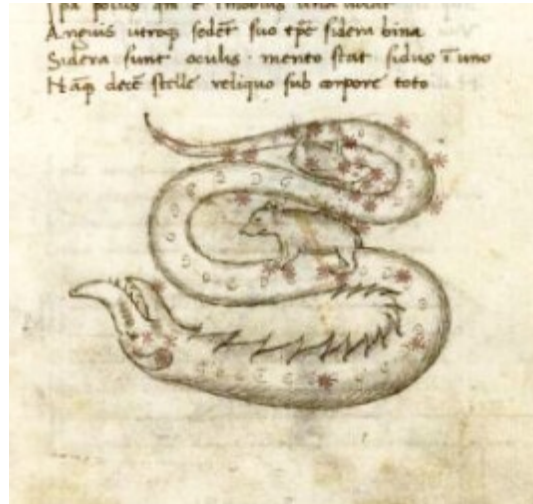 Ipa polus qui e imobilis
Anguis utroq; sedet suo tpe sidera bina
Sidera sunt oculis · mento stat sidus ī uno
Nāq; decē stelle reliquo sub corpore toto